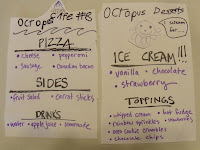 Octopus
PIZZA
• cheese • pepperoni
• sausage • Canadian bacon
SIDES
• fruit salad • carrot sticks
DRINKS
• water • apple juice • lemonade
Octopus Desserts
I scream
for...
ICE CREAM!!!
• vanilla • chocolate
• strawberry
TOPPINGS
• whipped cream • hot fudge
• rainbow sprinkles • strawberries
• oreo cookie crumbles
• chocolate chips